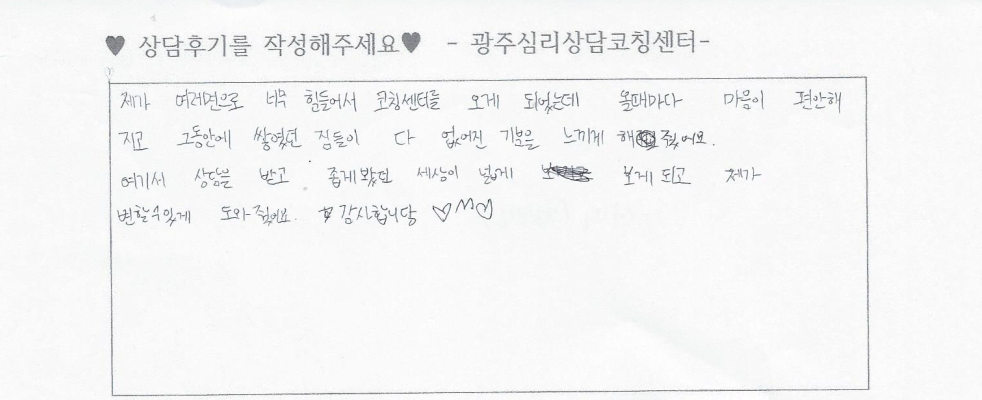 ♥ 상담후기를 작성해주세요♥ - 광주심리상담코칭센터-
제가 여러면으로 너무 힘들어서 코칭센터를 오게 되었는데 올때마다 마음이 편안해
지고 그동안에 쌓였던 짐들이 다 없어진 기분을 느끼게 해줬어요.
여기서 상담을 받고 좁게봤던 세상이 넓게 보게 되고 제가
변할수있게 도와줬어요. 감사합니당 ♡m♡